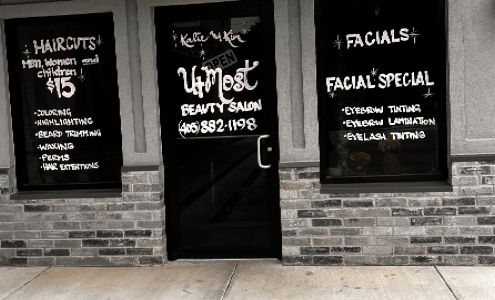 HAIRCUTS
MEN, WOMEN and
children
$15
• COLORING
• HIGHLIGHTING
• BEARD TRIMMING
• WAXING
• PERMS
• HAIR EXTENTIONS
Katie 4 Kin
OPEN
UtMost
BEAUTY SALON
(405) 882-1198
FACIALS
FACIAL SPECIAL
• EYEBROW TINTING
• EYEBROW LAMINATION
• EYELASH TINTING